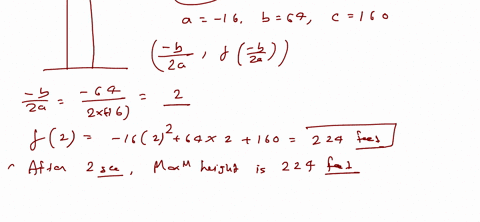 a = -16, b = 64, c = 160
(-b/2a, f(-b/2a))
-b/2a = -64/2×(-16) = 2
f(2) = -16(2)² + 64 × 2 + 160 = 224 feet
After 2 sec, Max^M height is 224 feet